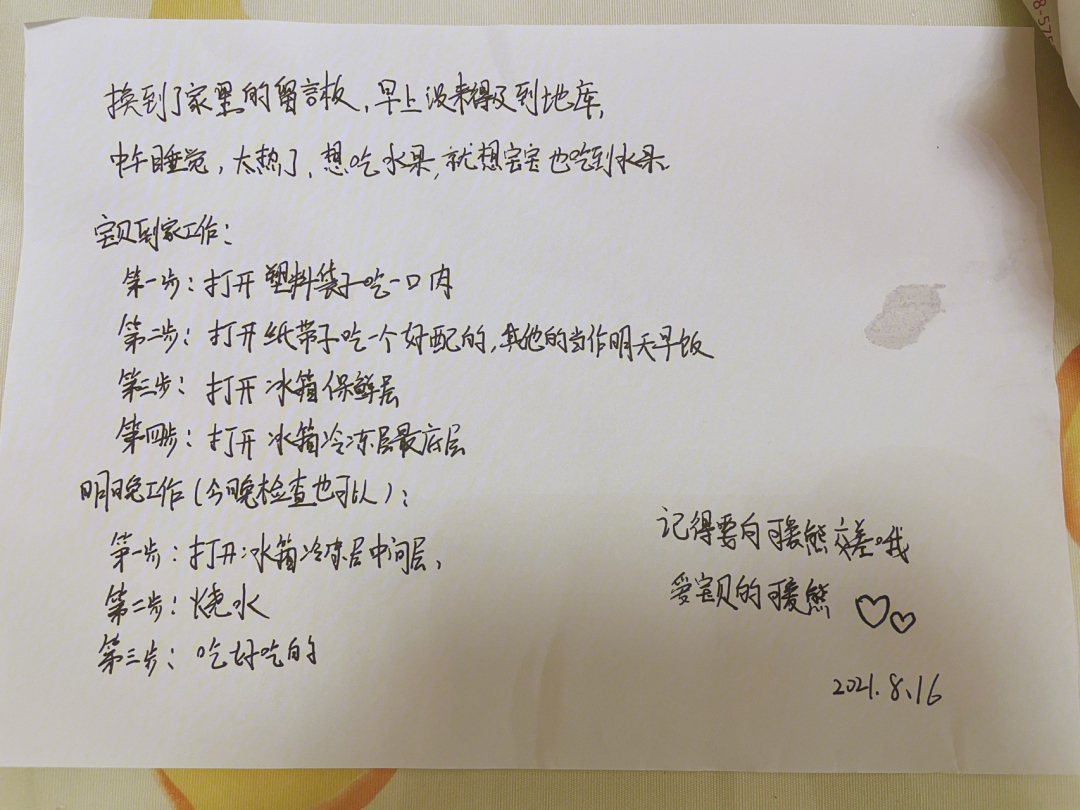 换到了家里的留言板,早上没来得及到地库,
中午睡觉,太热了,想吃水果,就想宝宝也吃到水果。
宝贝到家工作:
第一步:打开塑料袋子吃一口肉
第二步:打开纸带子吃一个好配的,其他的当作明天早饭
第三步:打开冰箱保鲜层
第四步:打开冰箱冷冻层最底层
明晚工作(今晚检查也可以):
第一步:打开冰箱冷冻层中间层,
第二步:烧水
第三步:吃好吃的
记得要向可爱熊交差哦
爱宝贝的可爱熊
2021.8.16
8-575